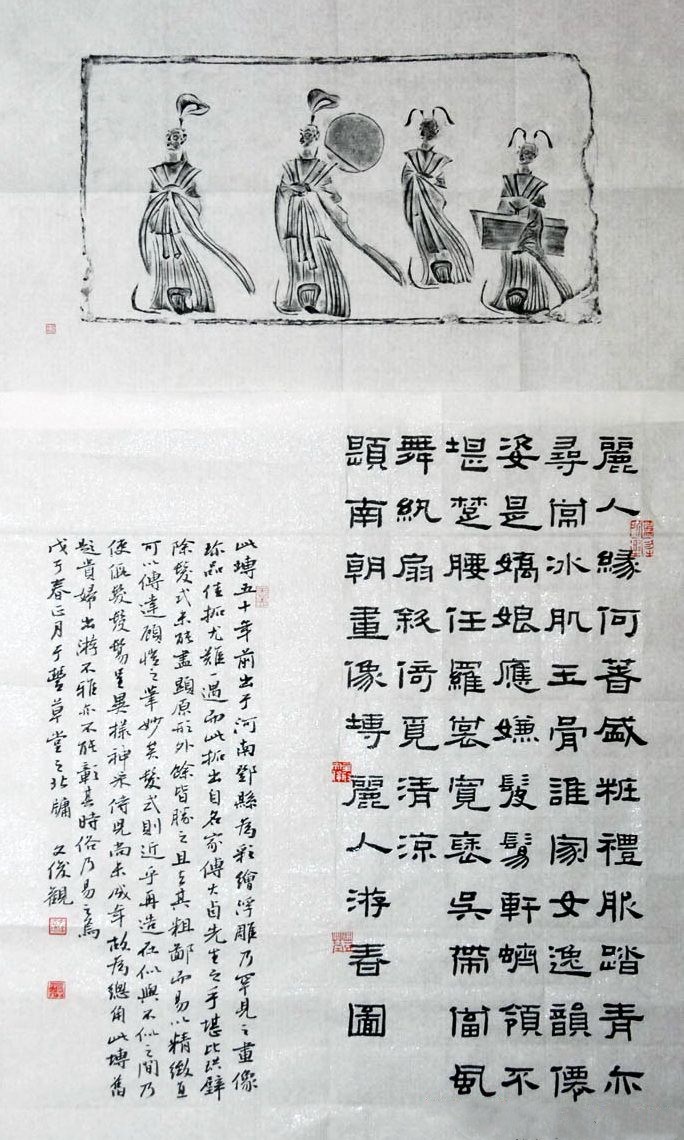 麗人緣何著盛粧禮服踏青亦
尋常冰肌玉骨誰家女逸韻僊
姿是嬌娘應嫌髮髾軒蠐領不
堪楚腰任羅裳寬吳帶當風
舞紈扇斜倚覓清涼
題南朝畫像塼麗人游春圖
此塼五十年前出于河南鄧縣為彩繪浮雕乃罕見之畫像
珍品佳拓尤難一遇而此拓出自名家傅大卣先生之手堪比珙璧
除髮式未能盡顯原形外餘皆勝之且去其粗鄙而易以精緻直
可以傳達顧愷之筆妙矣髮式則近乎再造在似與不似之間乃
使髮髾呈異樣神采侍兒尚未成年故為總角此塼舊
題貴婦出游不雅亦不能彰其時俗乃易之焉
戊子春正月于豐草堂之北牖 俊觀